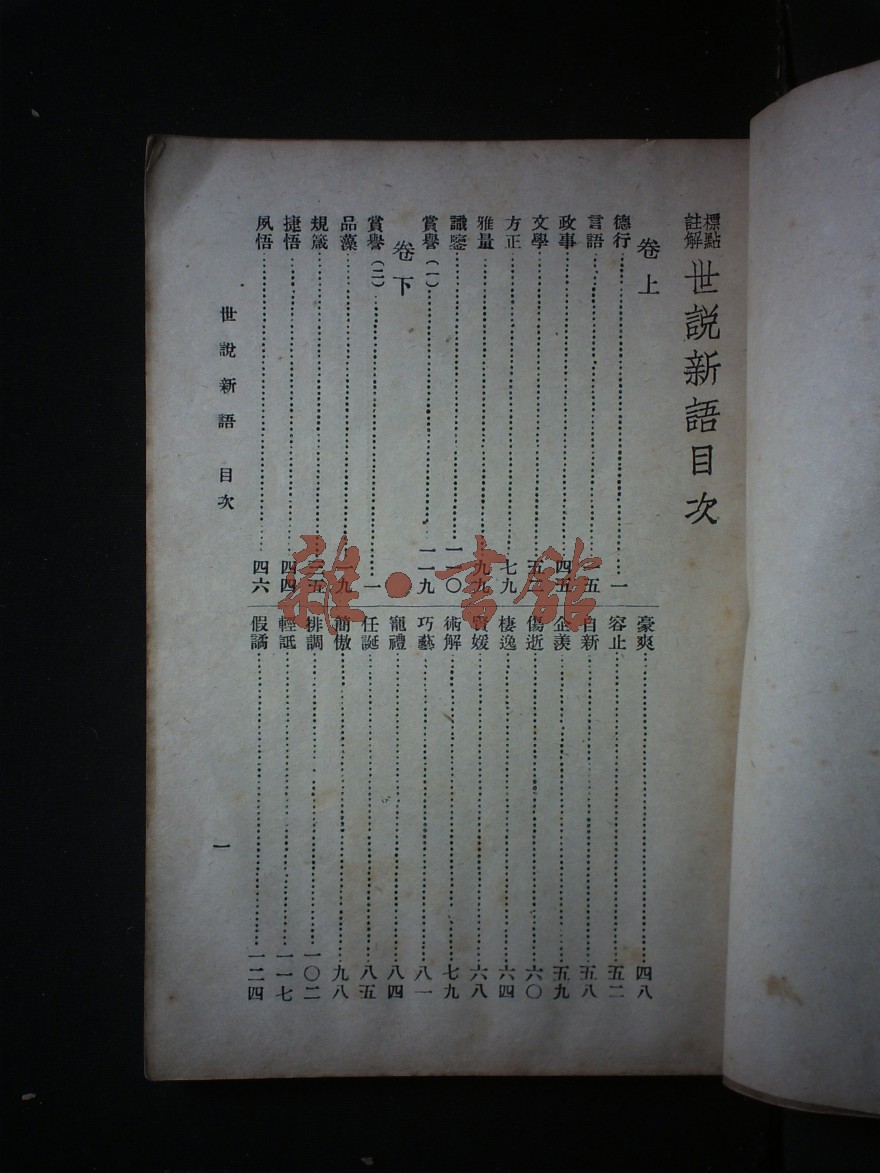 標點註解 世説新語目次
卷上
德行……一
言語……一五
政事……四五
文學……
方正……七九
雅量……九九
識鑒……一一〇
賞譽(一)……一一九
卷下
賞譽(二)……一
品藻……一九
規箴……三五
捷悟……四四
夙悟……四六
豪爽……四八
容止……五二
自新……五八
企羨……五九
傷逝……六〇
棲逸……六四
賢媛……六八
術解……七九
巧藝……八一
寵禮……八四
任誕……八五
簡傲……九八
排調……一〇二
輕詆……一一七
假譎……一二四
世說新語 目次
一
雜·書館